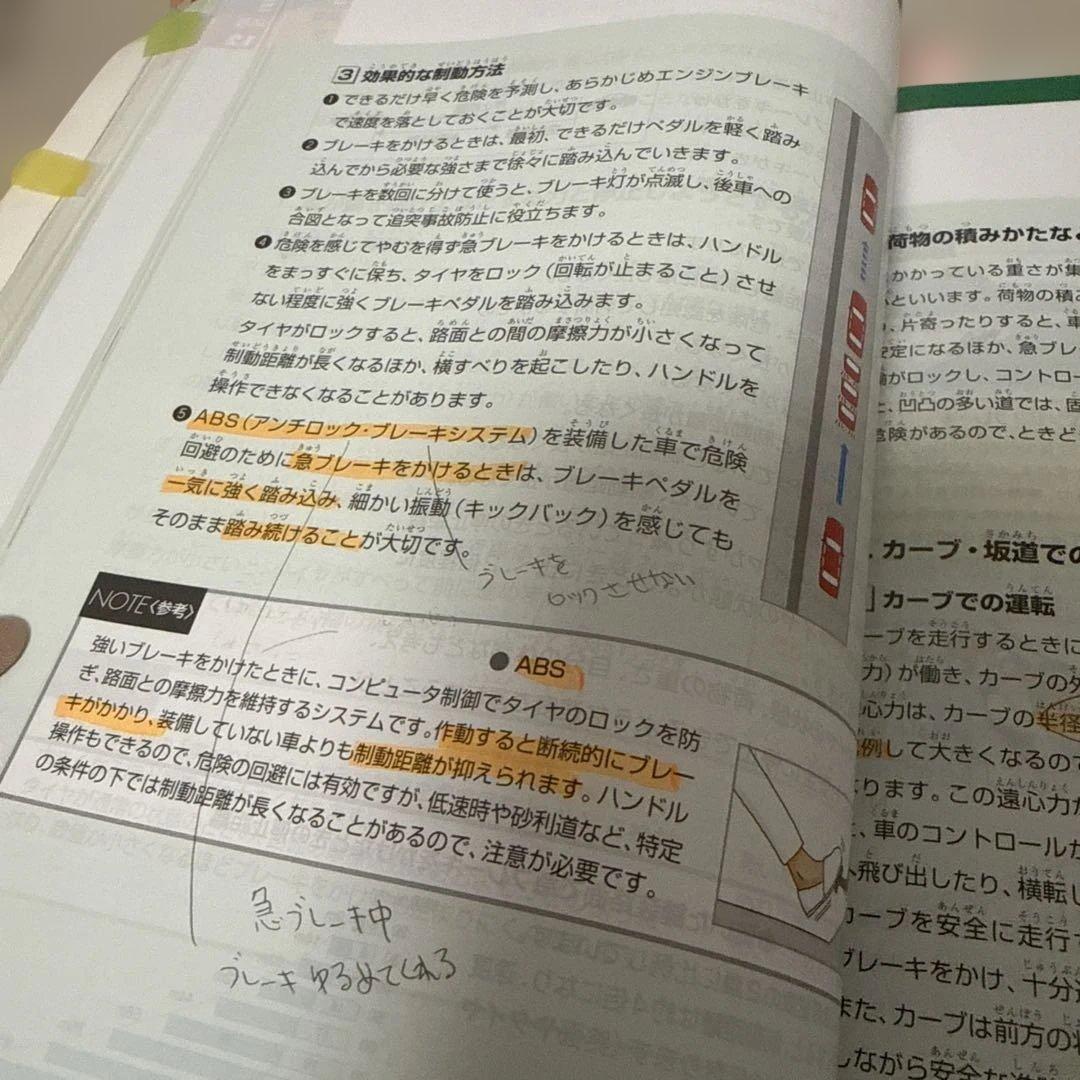 3 効果的な制動方法
❶ できるだけ早く危険を予測し、あらかじめエンジンブレーキ
で速度を落としておくことが大切です。
❷ ブレーキをかけるときは、最初、できるだけペダルを軽く踏み
込んでから必要な強さまで徐々に踏み込んでいきます。
❸ ブレーキを数回に分けて使うと、ブレーキ灯が点滅し、後車への
合図となって追突事故防止に役立ちます。
❹ 危険を感じてやむを得ず急ブレーキをかけるときは、ハンドル
をまっすぐに保ち、タイヤをロック（回転が止まること）させ
ない程度に強くブレーキペダルを踏み込みます。
タイヤがロックすると、路面との間の摩擦力が小さくなって
制動距離が長くなるほか、横すべりを起こしたり、ハンドルを
操作できなくなることがあります。
❺ ABS（アンチロック・ブレーキシステム）を装備した車で危険
回避のために急ブレーキをかけるときは、ブレーキペダルを
一気に強く踏み込み、細かい振動（キックバック）を感じても
そのまま踏み続けることが大切です。
ブレーキを
ロックさせない
NOTE〈参考〉
●ABS
強いブレーキをかけたときに、コンピュータ制御でタイヤのロックを防
ぎ、路面との摩擦力を維持するシステムです。作動すると断続的にブレー
キがかかり、装備していない車よりも制動距離が抑えられます。ハンドル
操作もできるので、危険の回避には有効ですが、低速時や砂利道など、特定
の条件の下では制動距離が長くなることがあるので、注意が必要です。
急ブレーキ中
ブレーキゆるめてくれる
荷物の積みかたな
かかっている重さが集
といいます。荷物の積み
片寄ったりすると、車
安定になるほか、急ブレ
がロックし、コントロー
凹凸の多い道では、固
危険があるので、ときど
カーブ・坂道での
カーブでの運転
ーブを走行するときに
力）が働き、カーブの外
心力は、カーブの半径
例して大きくなるので
ります。この遠心力が
車のコントロールが
飛び出したり、横転し
カーブを安全に走行す
ブレーキをかけ、十分速
また、カーブは前方の状
しながら安全な